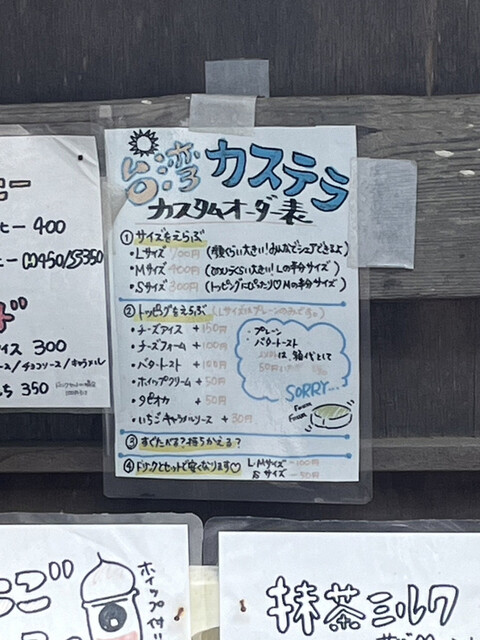 台湾カステラ
カスタムオーダー表
① サイズをえらぶ
・Lサイズ 700円 (顔ぐらい大きい!みんなでシェアできるよ)
・Mサイズ 400円 (手のひらぐらい大きい!Lの半分サイズ)
・Sサイズ 300円 (トッピングにぴったり♡Mの半分サイズ)
② トッピングをえらぶ (Lサイズはプレーンのみです)
・チーズアイス +150円
・チーズフォーム +100円
・バタートースト +100円
・ホイップクリーム +50円
・タピオカ +50円
・いちごキャラメルソース +30円
・プレーン
・バタートースト
は、箱代として
50円
SORRY...
Fuwa
Fuwa
③ すぐたべる?持ちかえる?
④ ドリンクとセットで安くなります♡ L Mサイズ -100円
Sサイズ -50円
ー
ヒー 400
ヒー M450/S350
ド
アイス 300
ース/チョコソース/キャラメル
350
ご
ホイップ付
抹茶ミルク